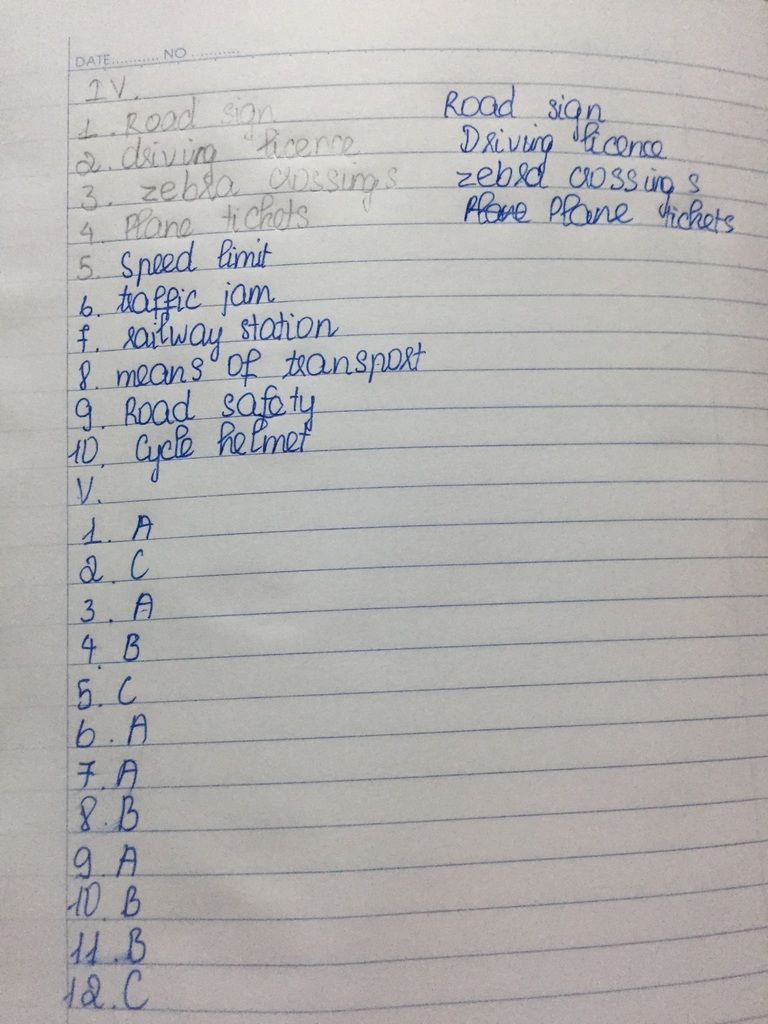 DATE............ NO ............
IV.
1. Road sign Road sign
2. driving licence Driving licence
3. zebra crossings zebra crossings
4. Plane tickets Plane Plane tickets
5. Speed limit
6. traffic jam
7. railway station
8. means of transport
9. Road safety
10. Cycle helmet
V.
1. A
2. C
3. A
4. B
5. C
6. A
7. A
8. B
9. A
10. B
11. B
12. C